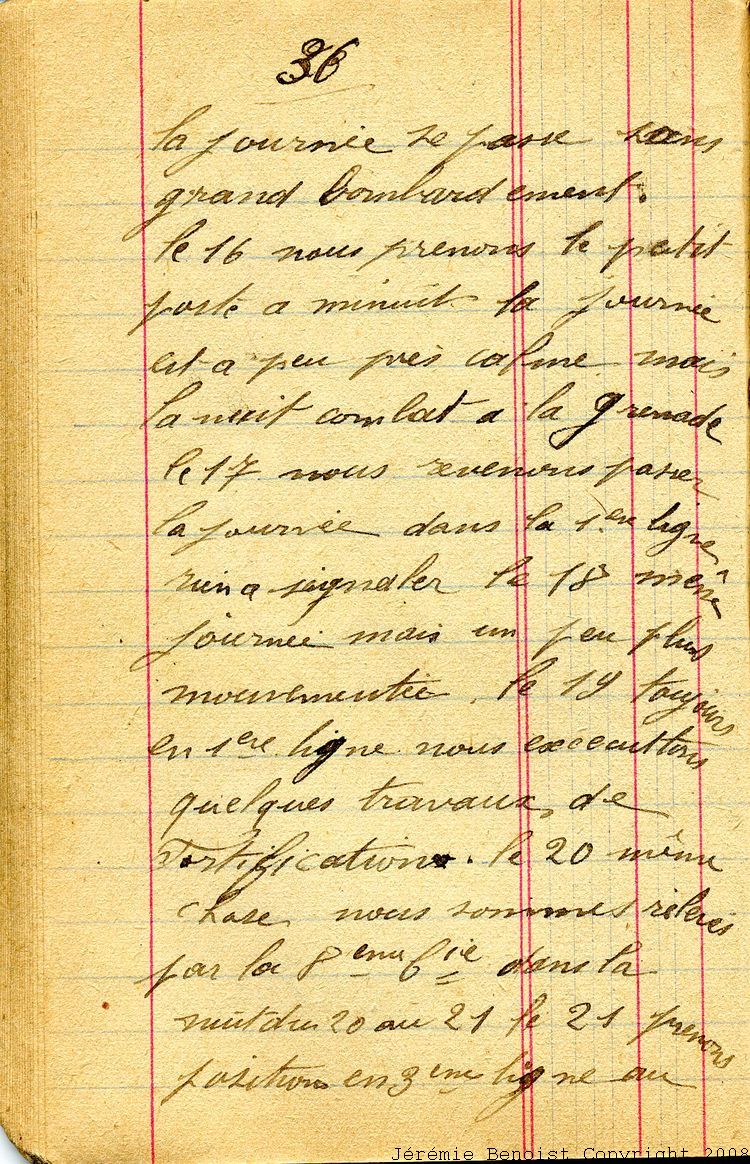 36
la journée se passe sans
grand bombardement.
le 16 nous prenons le petit
poste a minuit la journée
est a peu près calme mais
la nuit combat a la grenade
le 17 nous revenons passer
la journée dans la 1ere ligne
rien a signaler le 18 même
journée mais un peu plus
mouvementée, le 19 toujours
en 1ere ligne nous excecuttons
quelques travaux, de
Fortification. le 20 même
chose nous sommes relevés
par la 8eme Cie dans la
nuit du 20 au 21 le 21 prenons
position en 3eme ligne au
Jérémie Benoist Copyright 2008